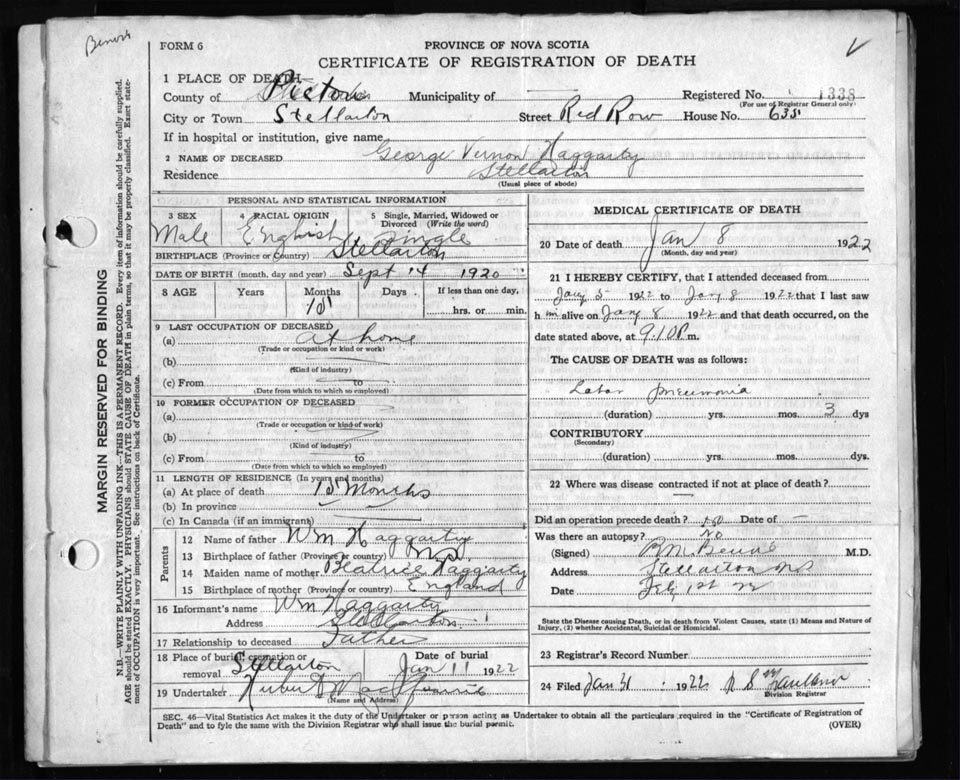 FORM 6
PROVINCE OF NOVA SCOTIA
CERTIFICATE OF REGISTRATION OF DEATH
1 PLACE OF DEATH—
County of Pictou Municipality of — Registered No. 1338
(For use of Registrar General only)
City or Town Stellarton Street Red Row House No. 635
If in hospital or institution, give name
2 NAME OF DECEASED George Vernon Haggarty
Residence Stellarton
(Usual place of abode)
PERSONAL AND STATISTICAL INFORMATION
3 SEX 4 RACIAL ORIGIN 5 Single, Married, Widowed or Divorced (Write the word)
Male English Single
BIRTHPLACE (Province or Country) Stellarton
DATE OF BIRTH (month, day and year) Sept 14 1920
8 AGE Years Months Days If less than one day,
hrs. or min.
9 LAST OCCUPATION OF DECEASED
(a) at home
(Trade or occupation or kind or work)
(b)
(Kind of industry)
(c) From to
(Date from which to which so employed)
10 FORMER OCCUPATION OF DECEASED
(a)
(Trade or occupation or kind of work)
(b)
(Kind of industry)
(c) From to
(Date from which to which so employed)
11 LENGTH OF RESIDENCE (In years and months)
(a) At place of death Months
(b) In province
(c) In Canada (if an immigrant)
Parents
12 Name of father Wm Haggarty
13 Birthplace of father (Province or country) N.S.
14 Maiden name of mother Beatrice Haggarty
15 Birthplace of mother (Province or country) England
16 Informant's name Wm Haggarty
Address Stellarton
17 Relationship to deceased Father
18 Place of burial, cremation or removal Stellarton Date of burial Jan 11 1922
19 Undertaker
(Name and Address)
MEDICAL CERTIFICATE OF DEATH
20 Date of death Jan 8 1922
(Month, day and year)
21 I HEREBY CERTIFY, that I attended deceased from
Jany 5 1922 to Jany 8 1922 that I last saw
h im alive on Jany 8 1922 and that death occurred, on the
date stated above, at 9.10 P. m.
The CAUSE OF DEATH was as follows:
Lobar pneumonia
(duration) yrs. mos. 3 dys
CONTRIBUTORY
(Secondary)
(duration) yrs. mos. dys.
22 Where was disease contracted if not at place of death?
Did an operation precede death? no Date of —
Was there an autopsy? No
(Signed) M.D.
Address Stellarton NS
Date Feby 1st 22
State the Disease causing Death, or in death from Violent Causes, state (1) Means and Nature of
Injury, (2) whether Accidental, Suicidal or Homicidal.
23 Registrar's Record Number
24 Filed Jan 31 1922 R S Faulkner
Division Registrar
SEC. 46—Vital Statistics Act makes it the duty of the Undertaker or person acting as Undertaker to obtain all the particulars required in the "Certificate of Registration of
Death" and to fyle the same with the Division Registrar who shall issue the burial permit.
(OVER)
MARGIN RESERVED FOR BINDING
N.B.—WRITE PLAINLY WITH UNFADING INK—THIS IS A PERMANENT RECORD. Every item of information should be carefully supplied.
AGE should be stated EXACTLY. PHYSICIANS should STATE CAUSE OF DEATH in plain terms, so that it may be properly classified. Exact statement
of OCCUPATION is very important. See instructions on back of Certificate.